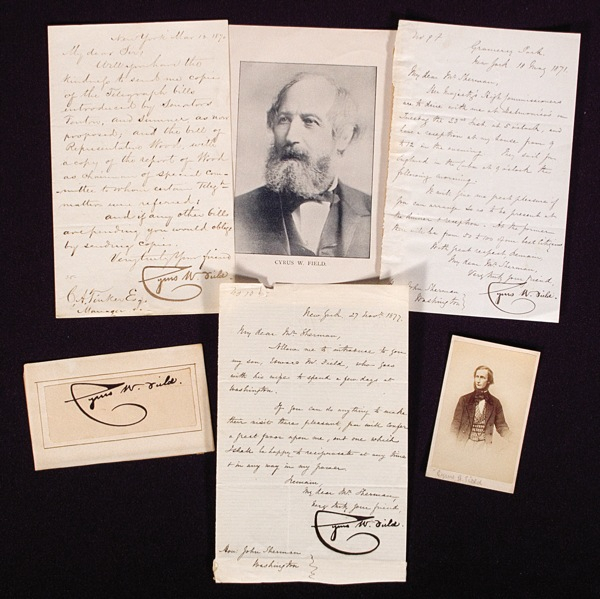 New York Mar 12, 187
My dear Sir:
Will you have the
kindness to send me copies
of the Telegraph bills
introduced by Senators
and Sumner as now
proposed; and the bill of
Representative Wood, with
a copy of the report of Wood
as chairman of special Com-
mittee to whom certain Telegh
matters were referred:
and if any other bills
are pending you would oblige
by sending copies.
Very truly Your friend
Cyrus W. Field
C. A. Tinker Esq
Manager
CYRUS W. FIELD.
Gramercy Park
New York 10 May 1871.
My dear Mr. Sherman,
Her Majesty's High Commissioners
are to dine with me at
Tuesday the 22nd inst at o'clock, and
have a reception at my house from 9
to 12 in the evening. They sail for
England in the at 9 o'clock the
following morning.
It will give me great pleasure if
you can arrange so as to be present at
the dinner & reception.
With great respect I remain
My dear Mr. Sherman,
Very truly your friend,
Cyrus W. Field.
John Sherman
Washington
New York 27 Novr. 1877.
My dear Mr. Sherman,
Allow me to introduce to you
my son, Edward M. Field, who goes
with his wife to spend a few days at
Washington.
If you can do anything to make
their visit there pleasant, you will confer
a great favor upon me, and one which
I shall be happy to reciprocate at any time
& in any way in my power.
I remain,
My dear Mr. Sherman,
Very truly your friend,
Cyrus W. Field.
Hon. John Sherman
Washington
Cyrus W. Field.
Cyrus W. Field